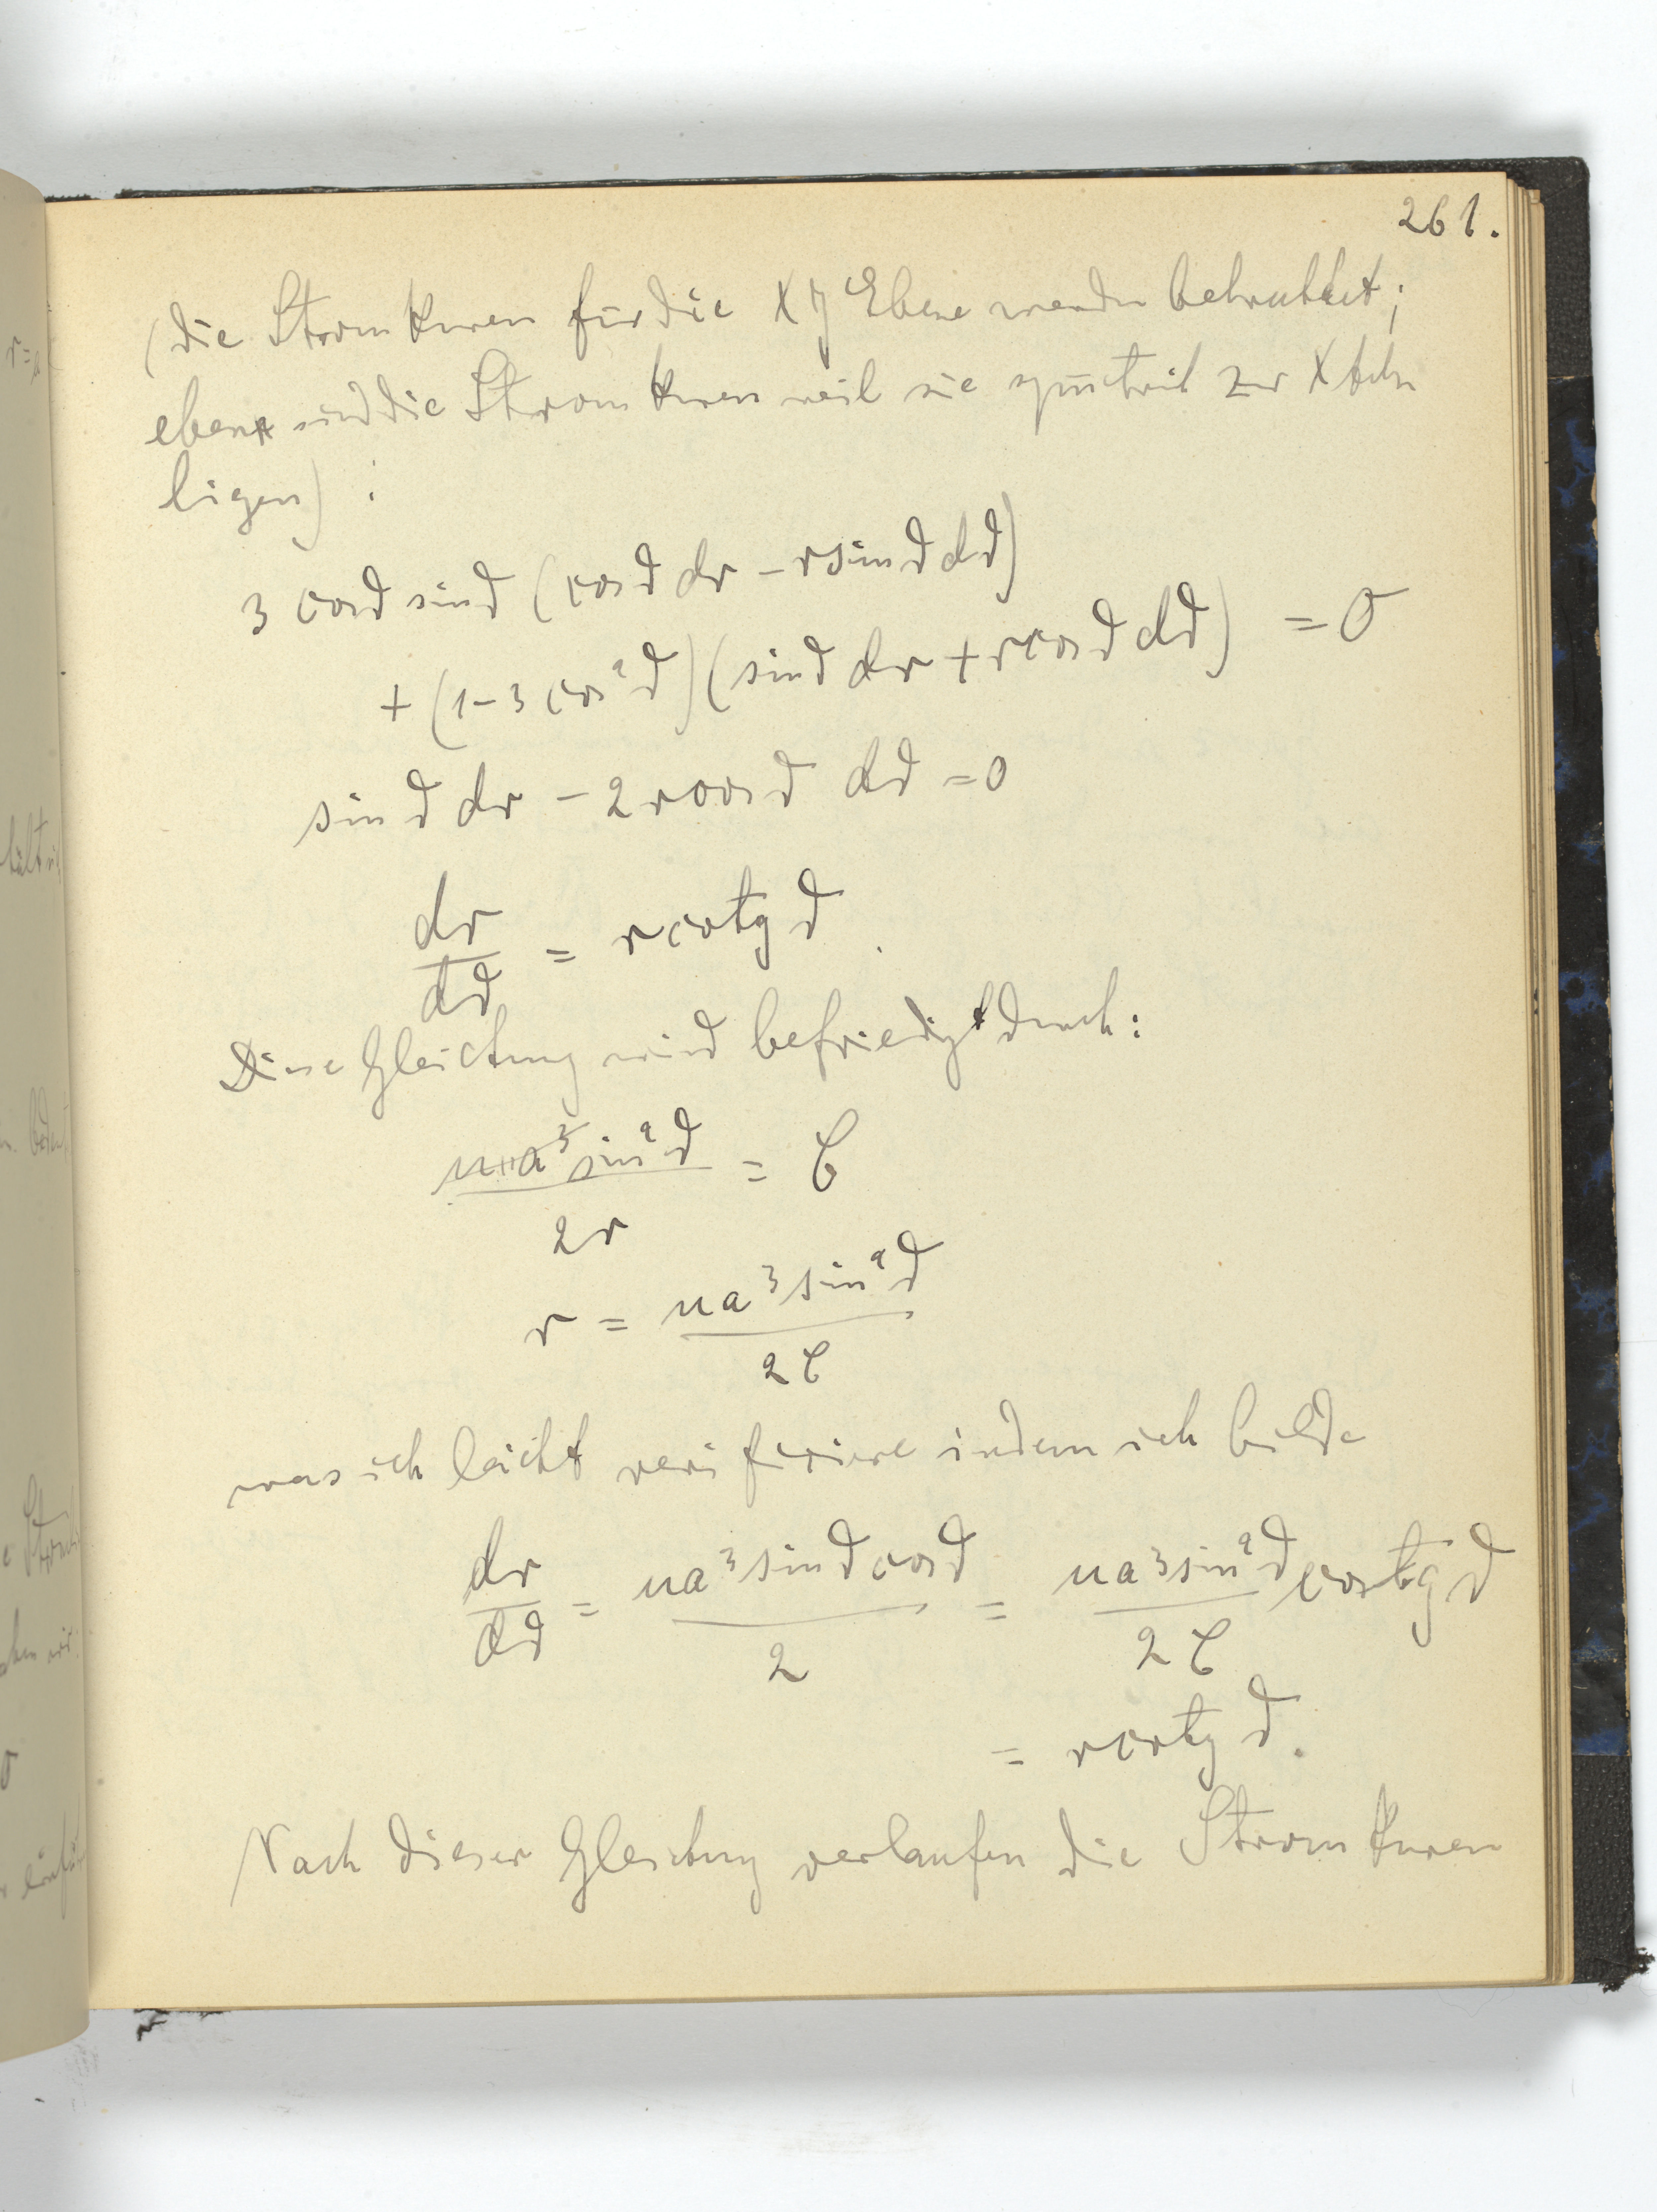 261.
(die Stromkurven für die XY Ebene werden betrachtet;
eben sind die Stromkurven weil sie symetrisch zur X Achse
ligen) :
3 cosϑ sinϑ (cosϑ dr − r sinϑ dϑ)
+ (1−3 cos²ϑ)(sinϑ dr + r cosϑ dϑ) = 0
sinϑ dr − 2 r cosϑ dϑ = 0
dr/dϑ = r cotg ϑ.
Diese Gleichung wird befriedigt durch:
u a³ sin²ϑ / 2r = C
r = u a³ sin²ϑ / 2C
was ich leicht verifiziere indem ich bilde
dr/dϑ = u a³ sinϑ cosϑ / 2 = u a³ sin²ϑ / 2C cotg ϑ
= r cotg ϑ.
Nach dieser Gleichung verlaufen die Stromkurven